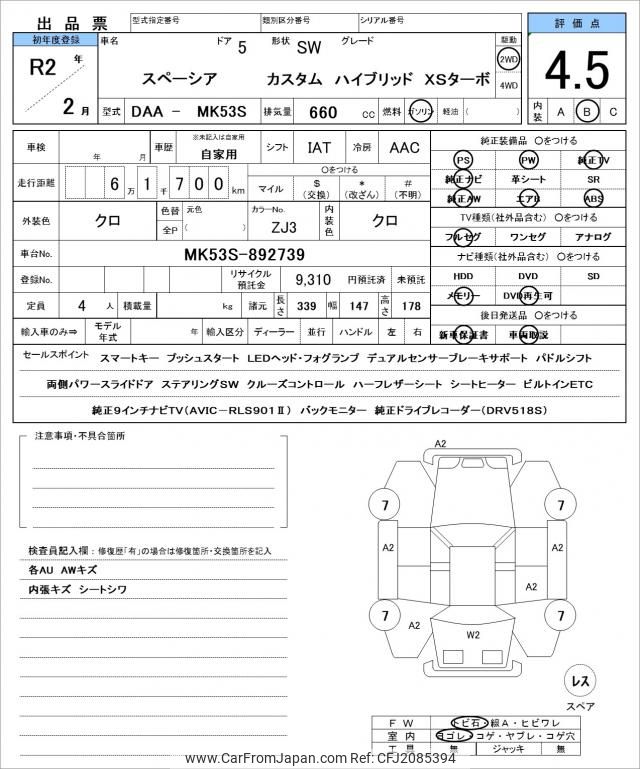 出品票 型式指定番号 類別区分番号 シリアル番号 評価点
初年度登録 車名 ドア 5 形状 SW グレード 駆動
R2 年 2WD 4.5
スペーシア カスタム ハイブリッド XSターボ 4WD
2 月 型式 DAA - MK53S 排気量 660 cc 燃料 ガソリン 軽油 ( ) 内装 A B C
車検 年 月 車歴 ※未記入は自家用 自家用 シフト IAT 冷房 AAC 純正装備品 〇をつける
PS PW 純正TV
走行距離 6 万 1 千 7 0 0 km 〇をつける 純正ナビ 革シート SR
マイル $ (交換) * (改ざん) # (不明) 純正AW エアB ABS
外装色 クロ 色替 元色 カラーNo. 内装色 クロ TV種類(社外品含む) 〇をつける
全P ( ) ZJ3 フルセグ ワンセグ アナログ
車台No. MK53S-892739 ナビ種類(社外品含む) 〇をつける
登録No. リサイクル預託金 9,310 円預託済 未預託 HDD DVD SD
定員 4 人 積載量 kg 諸元 長さ 339 幅 147 高さ 178 メモリー DVD再生可
後日発送品 〇をつける
輸入車のみ⇒ モデル年式 年 輸入区分 ディーラー 並行 ハンドル 左 右 新車保証書 車両取説
セールスポイント スマートキー プッシュスタート LEDヘッド・フォグランプ デュアルセンサーブレーキサポート パドルシフト
両側パワースライドドア ステアリングSW クルーズコントロール ハーフレザーシート シートヒーター ビルトインETC
純正9インチナビTV(AVIC-RLS901Ⅱ) バックモニター 純正ドライブレコーダー(DRV518S)
注意事項・不具合箇所
A2
7 7
A2 A2
検査員記入欄：修復歴「有」の場合は修復箇所・交換箇所を記入
各AU AWキズ
A2
内張キズ シートシワ
7 7
A2
W2
レス
スペア
FW トビ石・線A・ヒビワレ
室内 ヨゴレ・コゲ・ヤブレ・コゲ穴
工具 無 ジャッキ 無
www.CarFromJapan.com Ref: CFJ2085394